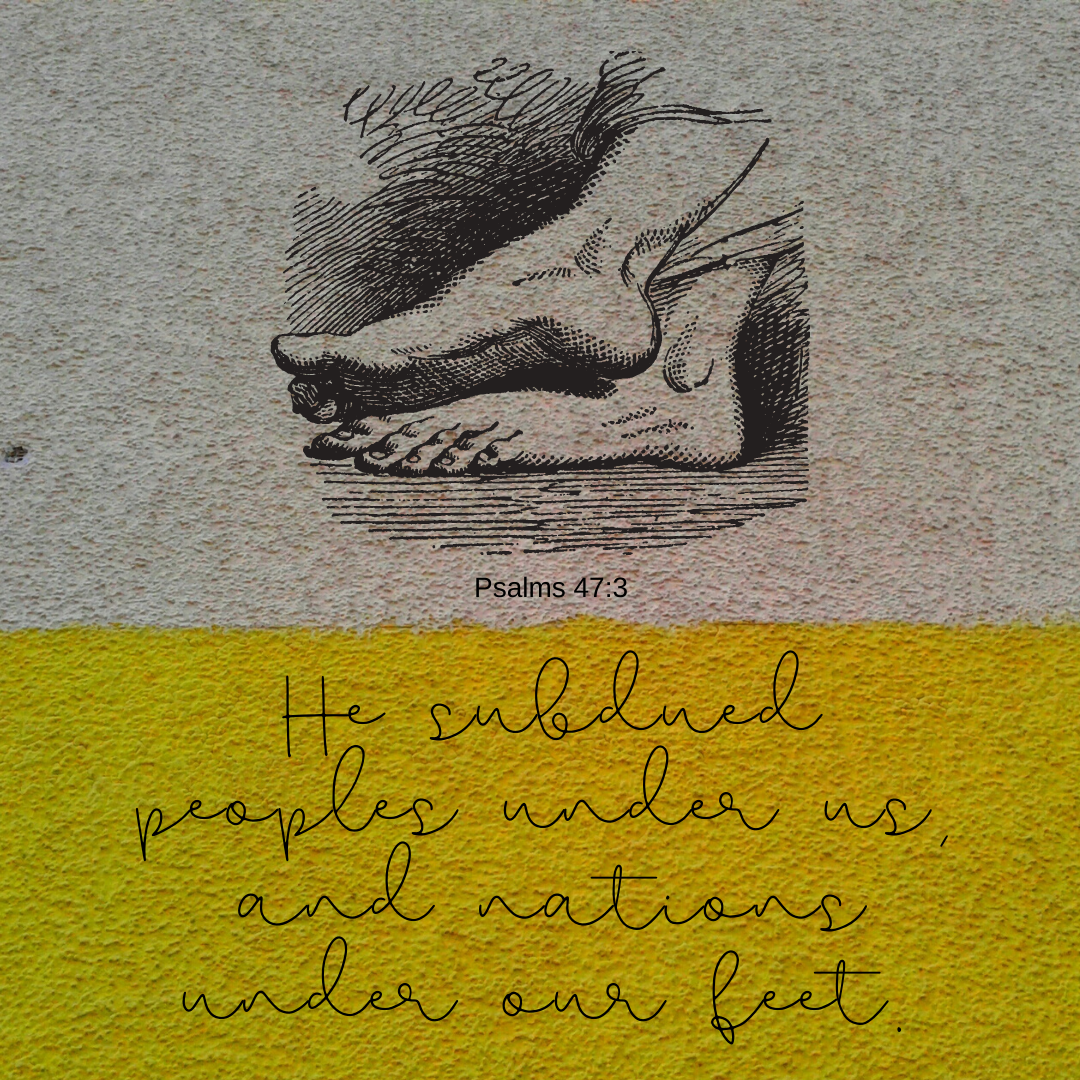 Psalms 47:3
He subdued
peoples under us,
and nations
under our feet.